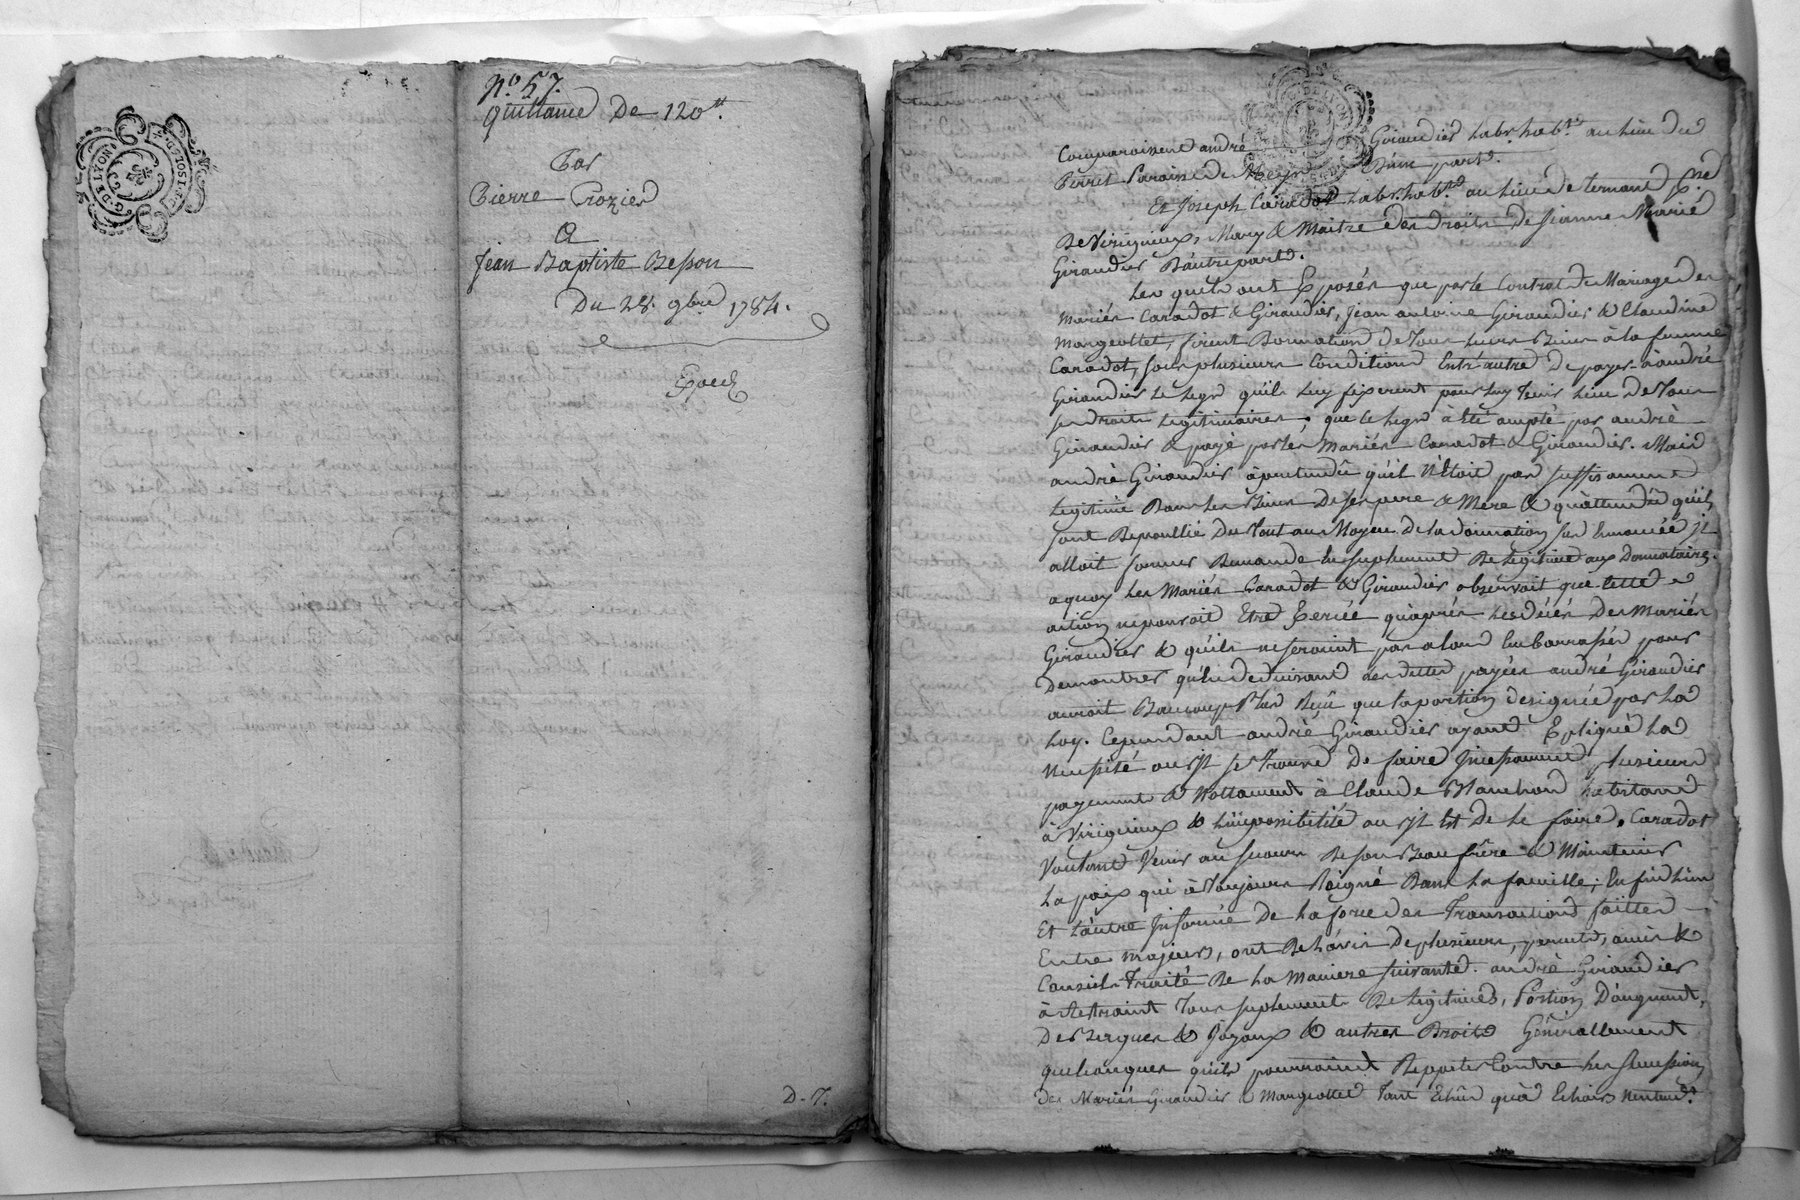 G. DE LYON
N.º 57.
Quittance De 120.tt
Par
Pierre Crozier
A
Jean Baptiste Besson
Du 28. 9bre 1784.
Exped
D. 7.
Comparoissent andré Giraudier labr. habt. au lieu du
Perret Paroisse de D'une part.
Et Joseph Caradot labr. habt. au lieu de Ternand psse
De Virigneux, Mary & Maitre des droits de jeanne Marie
Giraudier D'autre part.
Lesquels ont Exposés que par le Contrat de Mariage des
Mariés Caradot & Giraudier, jean antoine Giraudier & Claudine
Mangeottet, firent Donnation de Tous leurs Biens à la femme
Caradot, sous plusieurs Conditions Entr'autre De payer à andré
Giraudier le legs qu'ils luy fixerent pour luy tenir lieu de Tous
ses droits legitimaires, que le legs à Eté accepté par andré
Giraudier & payé par les Mariés Caradot & Giraudier. Mais
andré Giraudier à pretendu qu'il N'étoit pas suffisament
legitimé Dans les Biens De ses pere & Mere & qu'attendu qu'ils
sont Depouillié Du Tout au Moyen De la donnation sus Enoncée il
alloit former Demande En suplement De legitime aux Donnataires.
a quoy les Mariés Caradot & Giraudier observoit que cette
action ne pouvoit Etre Exercée qu'aprés les décés Des Mariés
Giraudier & qu'ils ne seroient pas alors Embarrassés pour
Demontrer qu'En deduisant les dettes payées andré Giraudier
auroit Beaucoup Plus Reçû que la portion designée par la
loy. Cependant andré Giraudier ayant Expliqué la
Necessité ou jl se trouve De faire jncessament plusieurs
payements & Nottament à Claude Blanchon habitant
à Virigneux & l'impossibilité ou jl Est De le faire. Caradot
Voulant Venir au secours De son Beau frère & Maintenir
la paix qui à Toujours Reigné Dans la famille; Enfin l'un
Et l'autre jnformé De la force des Transactions faittes
Entre majeurs, ont De l'avis De plusieurs parents, amis &
Conseils Traité De la Maniere suivante. andré Giraudier
à Tous suplements De legitimes, Portion D'augment,
De Bagues & Joyaux & autres Droits Génerallement
quelconques qu'ils pourroient Repeter Contre les succession
des Mariés Giraudier & Mangeottet Tant Echûs qu'à Echoir